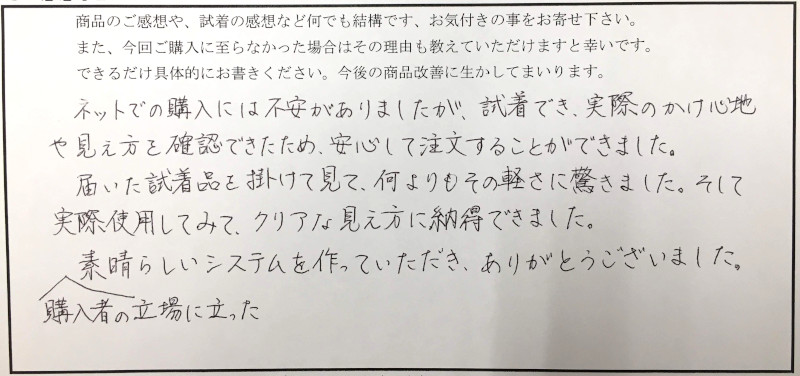 商品のご感想や、試着の感想など何でも結構です、お気付きの事をお寄せ下さい。
また、今回ご購入に至らなかった場合はその理由も教えていただけますと幸いです。
できるだけ具体的にお書きください。今後の商品改善に生かしてまいります。
ネットでの購入には不安がありましたが、試着でき、実際のかけ心地
や見え方を確認できたため、安心して注文することができました。
届いた試着品を掛けて見て、何よりもその軽さに驚きました。そして
実際使用してみて、クリアな見え方に納得できました。
素晴らしいシステムを作っていただき、ありがとうございました。
購入者の立場に立った